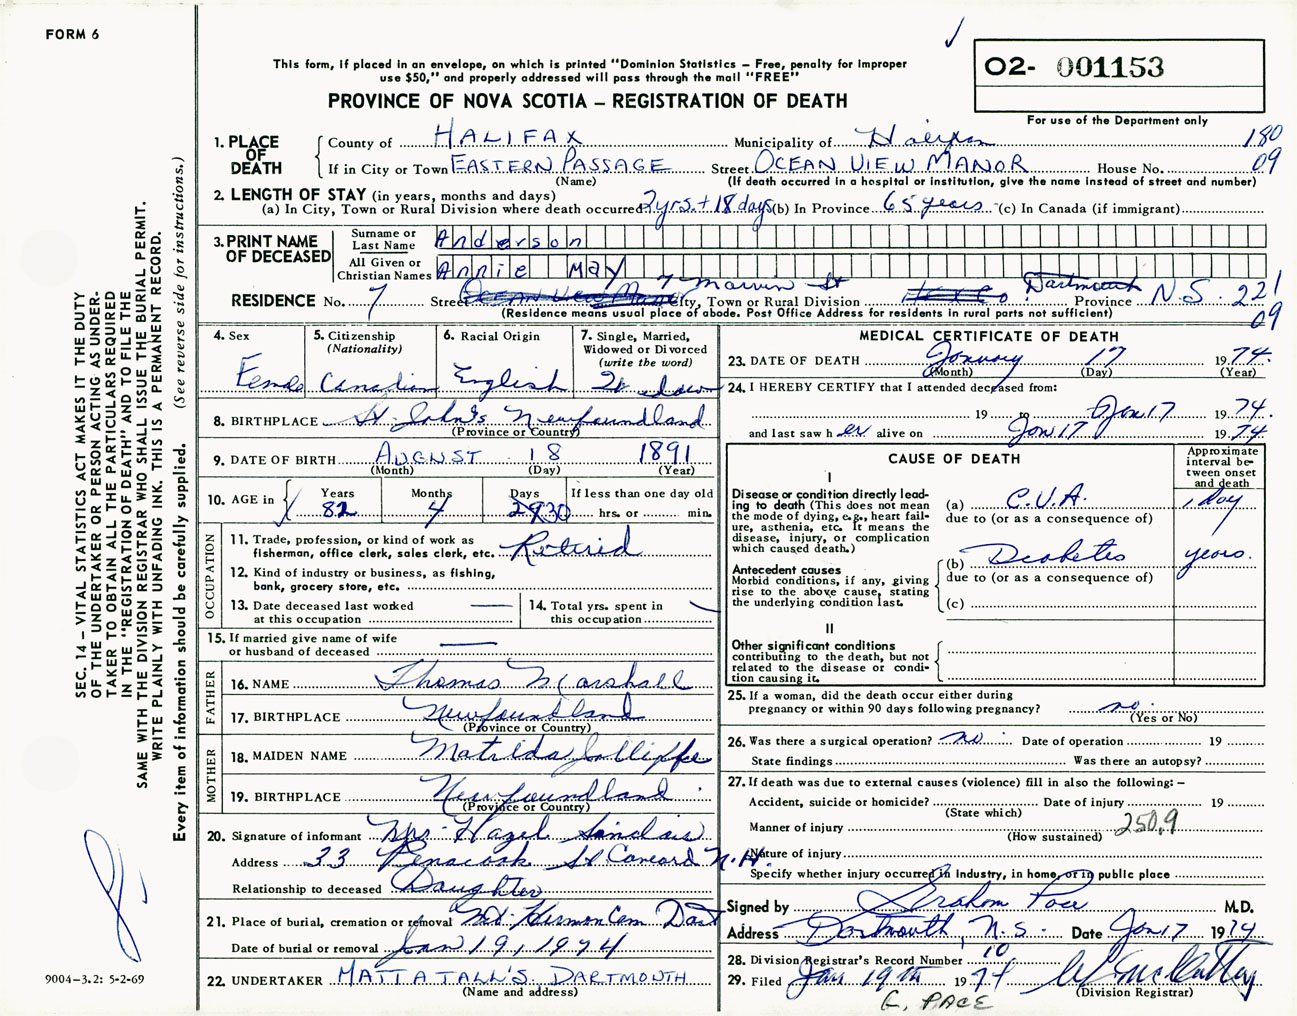 FORM 6
This form, if placed in an envelope, on which is printed "Dominion Statistics – Free, penalty for improper
use $50," and properly addressed will pass through the mail "FREE"
PROVINCE OF NOVA SCOTIA – REGISTRATION OF DEATH
O2- 001153
For use of the Department only
1. PLACE OF DEATH
County of HALIFAX Municipality of Halifax 180
If in City or Town EASTERN PASSAGE Street OCEAN VIEW MANOR House No. 09
(Name) (If death occurred in a hospital or institution, give the name instead of street and number)
2. LENGTH OF STAY (in years, months and days)
(a) In City, Town or Rural Division where death occurred 2 yrs. + 18 days (b) In Province 65 years (c) In Canada (if immigrant)
3. PRINT NAME OF DECEASED
Surname or Last Name Anderson
All Given or Christian Names Annie May
7 Marvin St
RESIDENCE No. 7 Street OCEAN VIEW MANOR City, Town or Rural Division Dartmouth Province N.S. 221
09
(Residence means usual place of abode. Post Office Address for residents in rural parts not sufficient)
4. Sex
Female
5. Citizenship
(Nationality)
Canadian
6. Racial Origin
English
7. Single, Married,
Widowed or Divorced
(write the word)
Widow
8. BIRTHPLACE St. John's Newfoundland
(Province or Country)
9. DATE OF BIRTH AUGUST 18 1891
(Month) (Day) (Year)
10. AGE in
Years 82
Months 4
Days 30
If less than one day old
hrs. or min.
OCCUPATION
11. Trade, profession, or kind of work as
fisherman, office clerk, sales clerk, etc. Retired
12. Kind of industry or business, as fishing,
bank, grocery store, etc.
13. Date deceased last worked
at this occupation —
14. Total yrs. spent in
this occupation
15. If married give name of wife
or husband of deceased —
FATHER
16. NAME Thomas Marshall
17. BIRTHPLACE Newfoundland
(Province or Country)
MOTHER
18. MAIDEN NAME Matilda Jolliffe
19. BIRTHPLACE Newfoundland
(Province or Country)
20. Signature of informant Mrs. Hazel Sinclair
Address 33 Penacook St Concord N.H.
Relationship to deceased Daughter
21. Place of burial, cremation or removal Mt. Hermon Cem Dart
Date of burial or removal Jan 19, 1974
22. UNDERTAKER MATTATALL'S. DARTMOUTH
(Name and address)
MEDICAL CERTIFICATE OF DEATH
23. DATE OF DEATH January 17 1974.
(Month) (Day) (Year)
24. I HEREBY CERTIFY that I attended deceased from:
19 to Jan 17 1974.
and last saw h er alive on Jan 17 1974
CAUSE OF DEATH
Approximate
interval be-
tween onset
and death
I
Disease or condition directly lead-
ing to death (This does not mean
the mode of dying, e.g., heart fail-
ure, asthenia, etc. It means the
disease, injury, or complication
which caused death.)
(a) C.V.A. 1 day
due to (or as a consequence of)
Antecedent causes
Morbid conditions, if any, giving
rise to the above cause, stating
the underlying condition last.
(b) Diabetes years.
due to (or as a consequence of)
(c)
II
Other significant conditions
contributing to the death, but not
related to the disease or condi-
tion causing it.
25. If a woman, did the death occur either during
pregnancy or within 90 days following pregnancy? no.
(Yes or No)
26. Was there a surgical operation? no Date of operation 19
State findings Was there an autopsy?
27. If death was due to external causes (violence) fill in also the following: –
Accident, suicide or homicide? Date of injury 19
(State which)
Manner of injury 250.9
(How sustained)
Nature of injury
Specify whether injury occurred in industry, in home, or in public place
Signed by Graham Pace M.D.
Address Dartmouth, N.S. Date Jan 17 1974
28. Division Registrar's Record Number 10
29. Filed Jan 19th 1974
(Division Registrar)
G. PACE
SEC. 14 – VITAL STATISTICS ACT MAKES IT THE DUTY
OF THE UNDERTAKER OR PERSON ACTING AS UNDER-
TAKER TO OBTAIN ALL THE PARTICULARS REQUIRED
IN THE "REGISTRATION OF DEATH" AND TO FILE THE
SAME WITH THE DIVISION REGISTRAR WHO SHALL ISSUE THE BURIAL PERMIT.
WRITE PLAINLY WITH UNFADING INK. THIS IS A PERMANENT RECORD.
Every item of information should be carefully supplied. (See reverse side for instructions.)
9004–3.2: 5-2-69